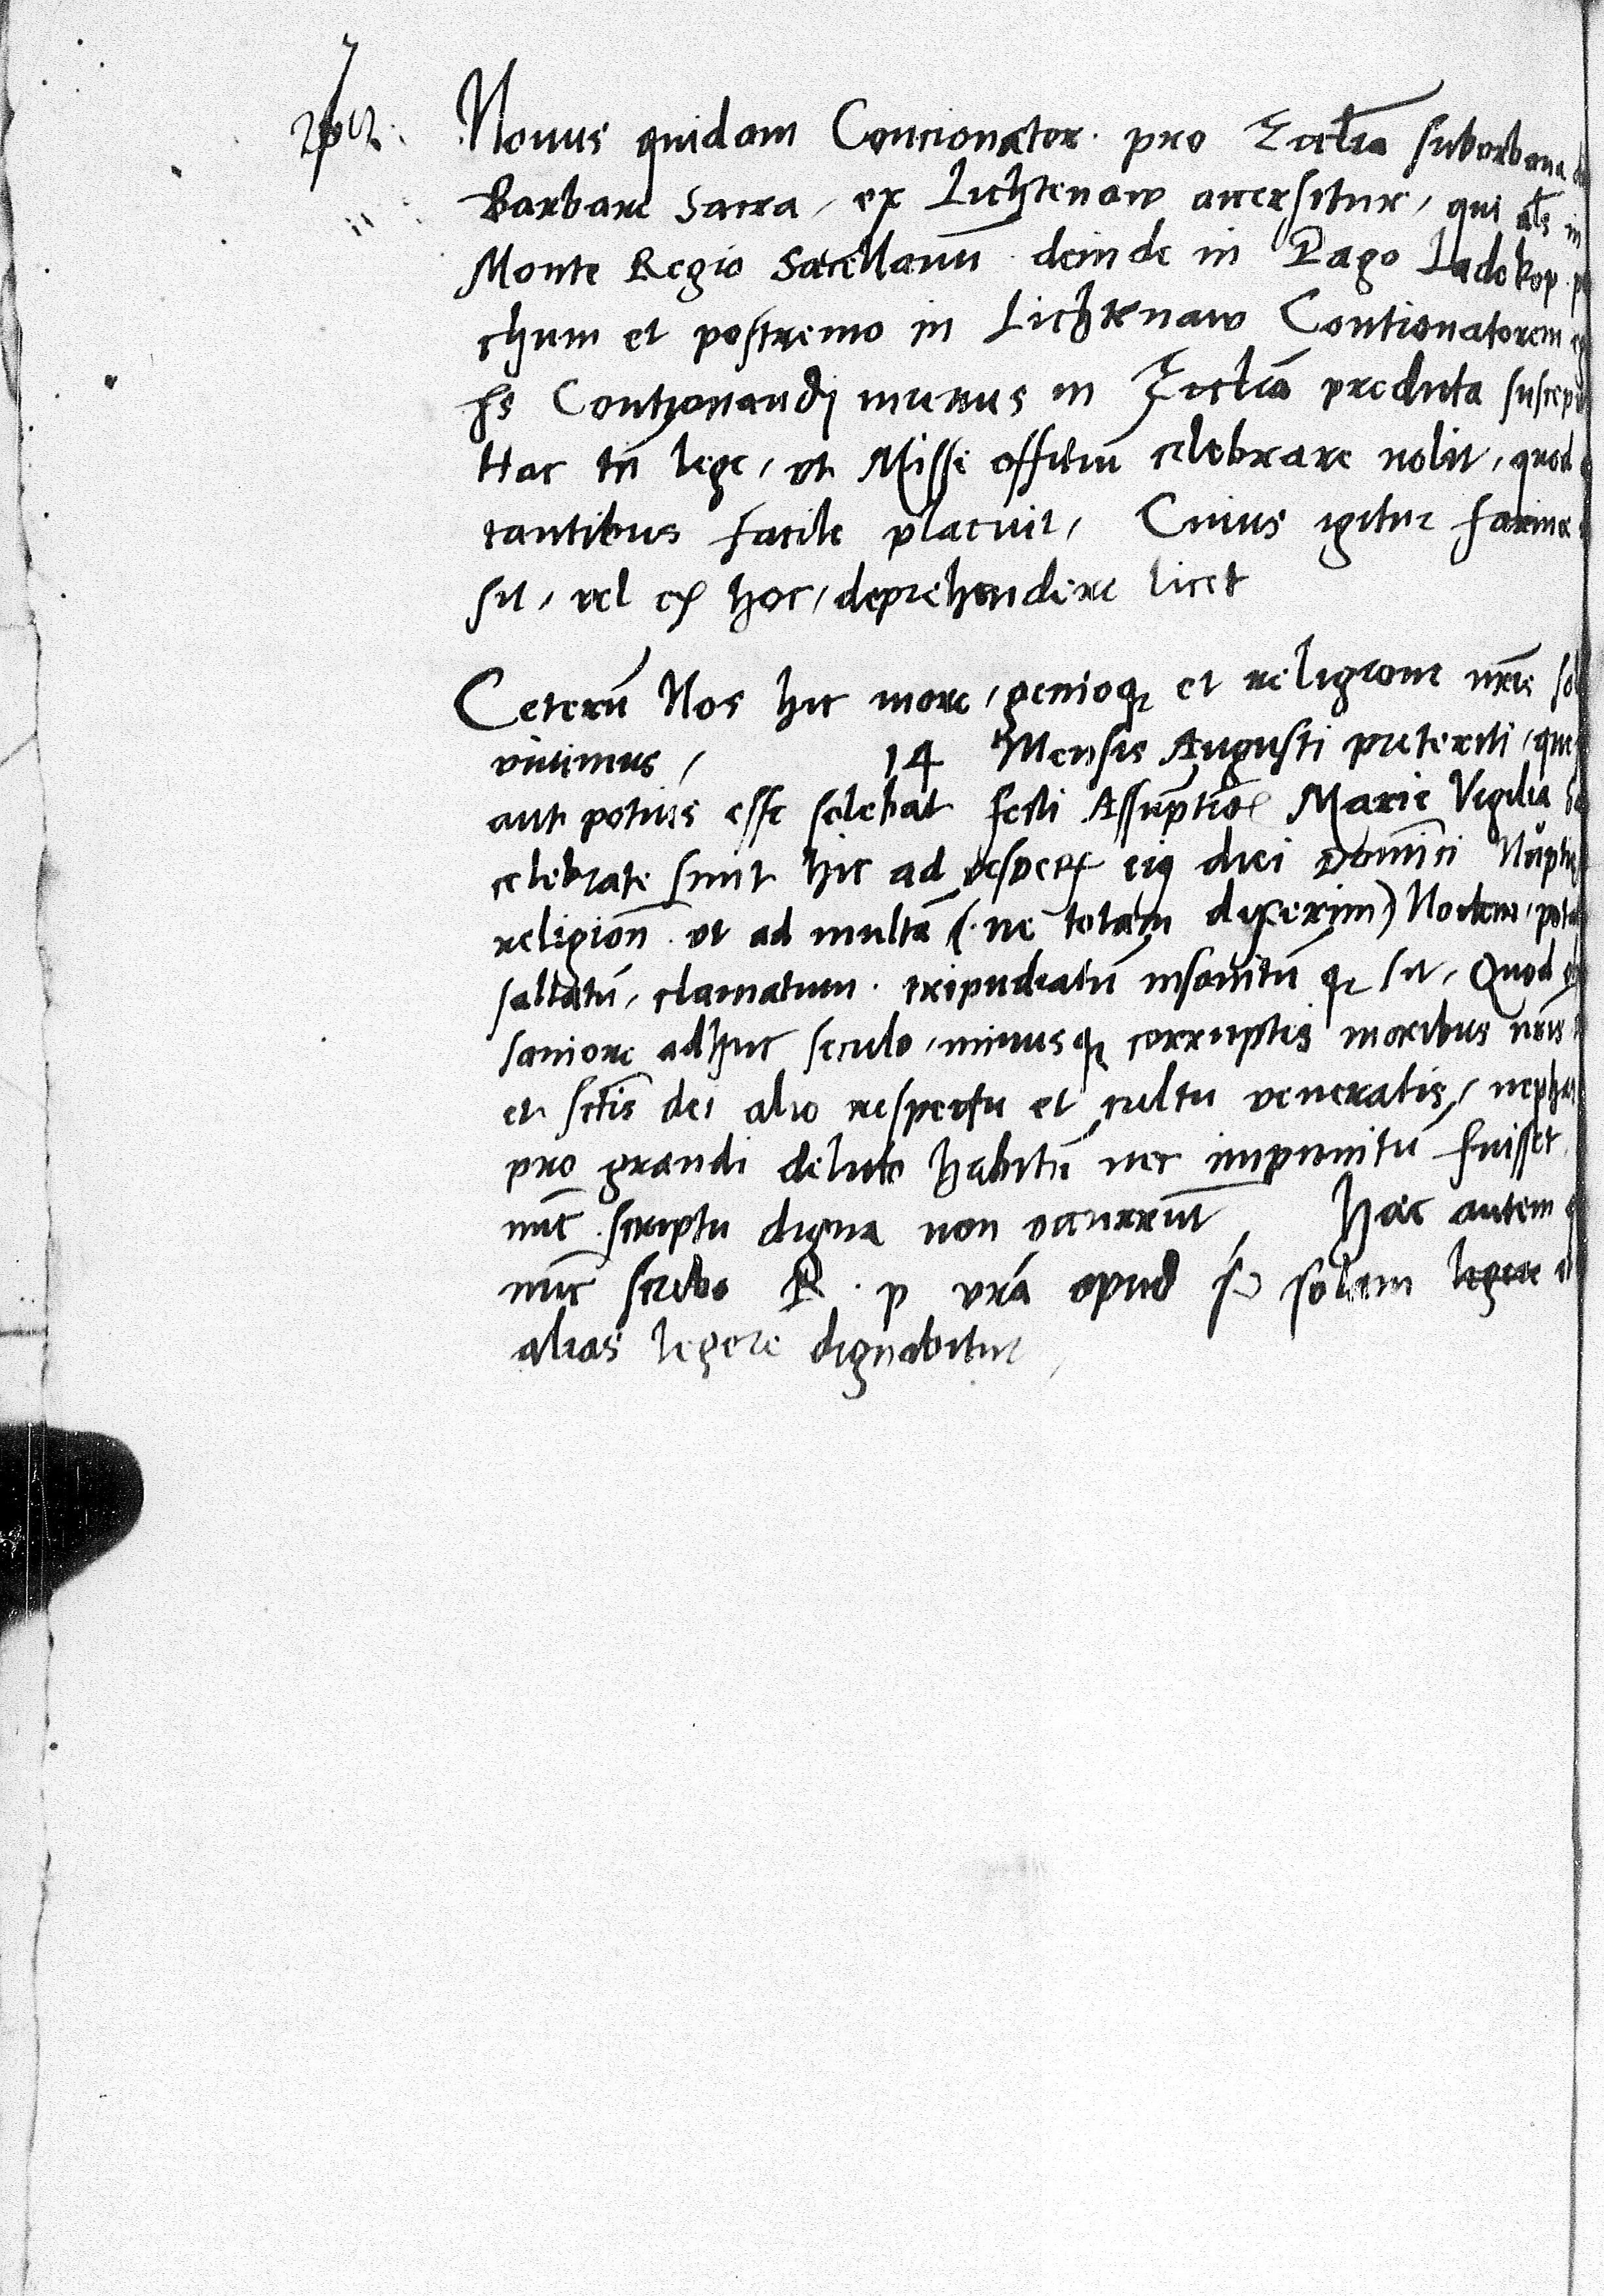 Nouus quidam Concionator pro Eccłia suburbana
Barbare sacra, ex Lichtenaw accersitur, qui ałs in
Monte Regio Sacellanū deinde in Pago Ladekop
chum et postremo in Lichtenaw Contionatorem
hs Contionandj munus in Eccłia predicta suscep
Hac tn̄ lege, vt Misse officiū celebrare nolit, quod
tantibus facile placuit, Cuius igitur farine
sit, vel ex hoc, deprehendere licet
Ceterū Nos hic more, genioq, et religione nr̄is
viuimus, 14 Mensis Augusti preteriti, que
aut potius esse solebat festi Assūptiōs Marie Vigilia
celebrate sunt hic ad vesperā eiq diei Dominici Nuptie
religion̄ vt ad multā (ne totam dixerim) Noctem, pota
saltatū, clamatum tripudiatū insanitū q, sit, Quod
saniore adhuc seculo, minusq, corruptis moribus nr̄is
et sct̄is dei alio respectu et cultu veneratis, neph
pro grandi delicto habitū nec impunitū fuisset
nūc scriptu digna non occurrūt, Hac autem
nūc scribo R. p vr̄a apud se solam legere
alias legere dignabitur,